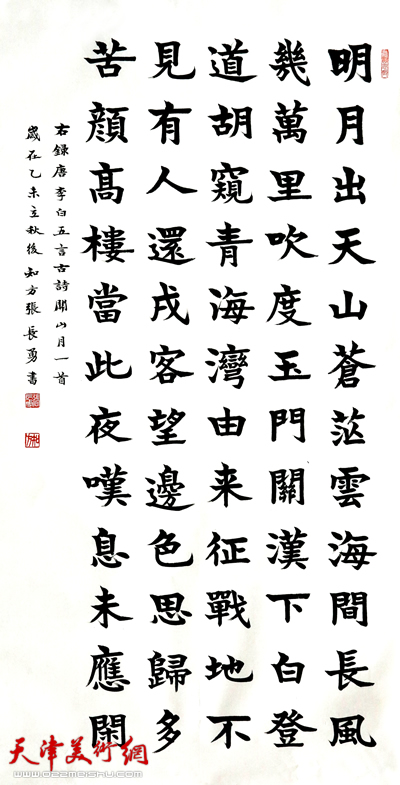 明月出天山蒼茫雲海間長風
幾萬里吹度玉門關漢下白登
道胡窺青海灣由来征戰地不
見有人還戍客望邊色思歸多
苦顔髙樓當此夜嘆息未應閑
右録唐李白五言古詩關山月一首
歲在乙未立秋後知方張長勇書
天津美術網
www.022meishu.com